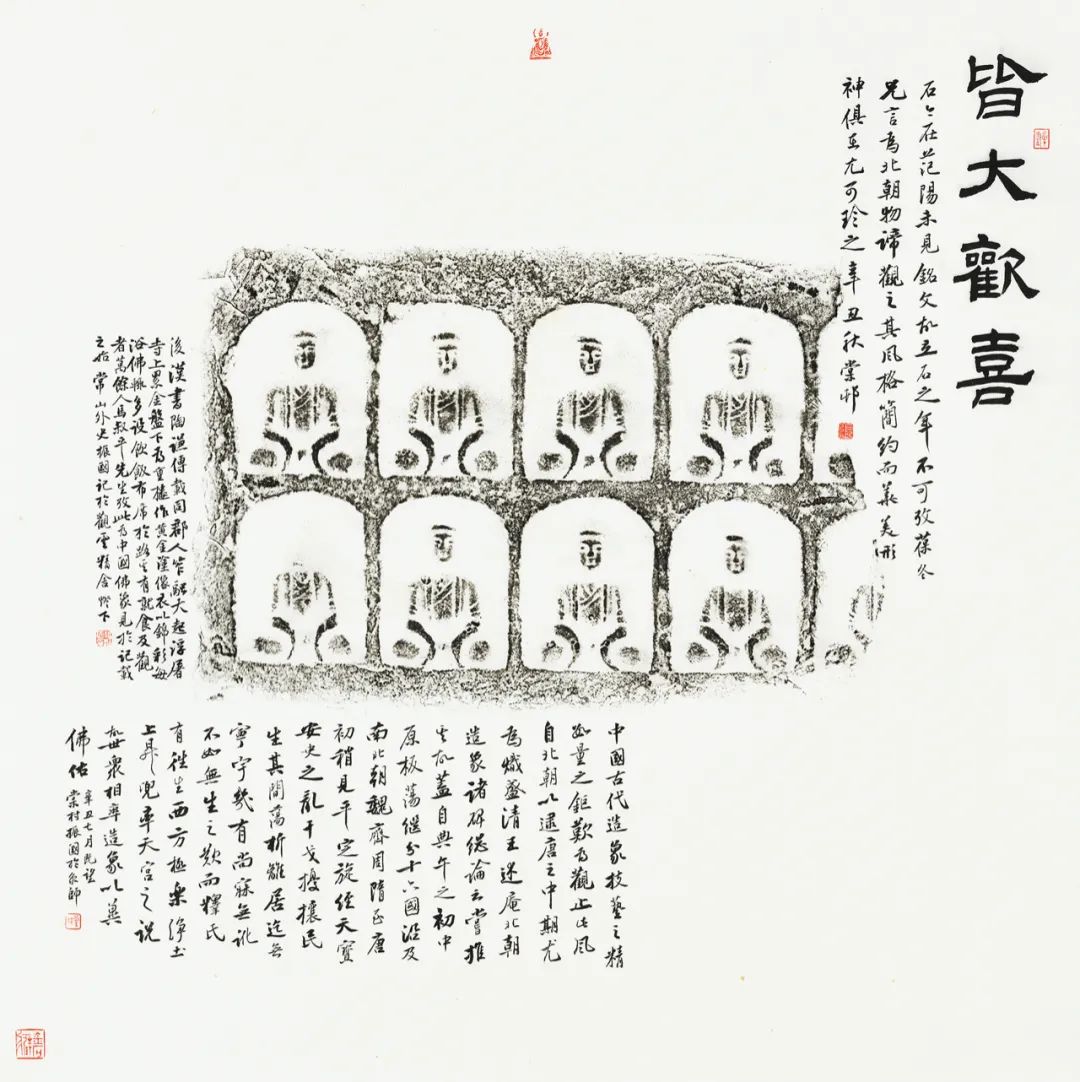 皆大歡喜
石今在范陽未見銘文故立石之年不可攷葆冬
兄言為北朝物諦觀之其風格簡約而義美形
神俱在尤可珍之辛丑秋棠邨
後漢書陶謙傳載同郡人笮融大起浮屠
寺上累金盤下為重樓作黃金塗像衣以錦彩每
浴佛輒多設飲飯布席於路其有就食及觀
者萬餘人馬叔平先生攷此為中國佛象見於記載
之始常山外史振國記於觀雲精舍燈下
中國古代造象技藝之精
如量之鉅歎為觀止此風
自北朝以逮唐之中期尤
為熾盛清王述庵北朝
造象諸碑總論云嘗推
其故蓋自典午之初中
原板蕩繼分十六國沿及
南北朝魏齊周隋至唐
初稍見平定旋經天寶
安史之亂干戈擾攘民
生其間蕩析離居迄無
寧宇幾有尚寐無訛
不如無生之歎而釋氏
有往生西方極樂淨土
上昇兜率天宮之說
故世眾相率造象以冀
佛佑
辛丑七月既望
棠村振國於京師